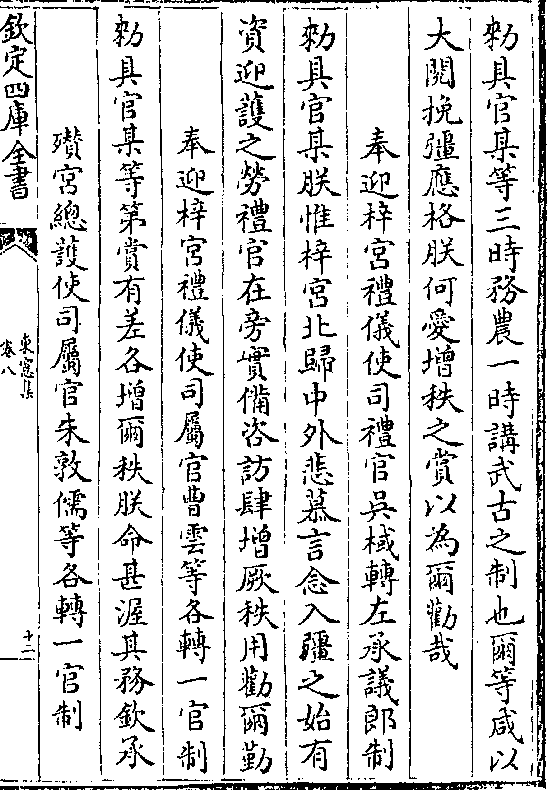 勑具官某等三時務農一時講武古之制也爾等咸以
大閱挽彊應格朕何愛增秩之賞以為爾勸哉
奉迎梓宮禮儀使司禮官吳棫轉左承議郎制
勑具官某朕惟梓宮北歸中外悲慕言念入疆之始有
資迎護之勞禮官在旁實備咨訪肆增厥秩用勸爾勤
奉迎梓宮禮儀使司屬官曹雲等各轉一官制
勑具官某等第賞有差各增爾秩朕命甚渥其務欽承
欑宮總護使司屬官朱敦儒等各轉一官制
欽定四庫全書
東窻集
卷八
十二